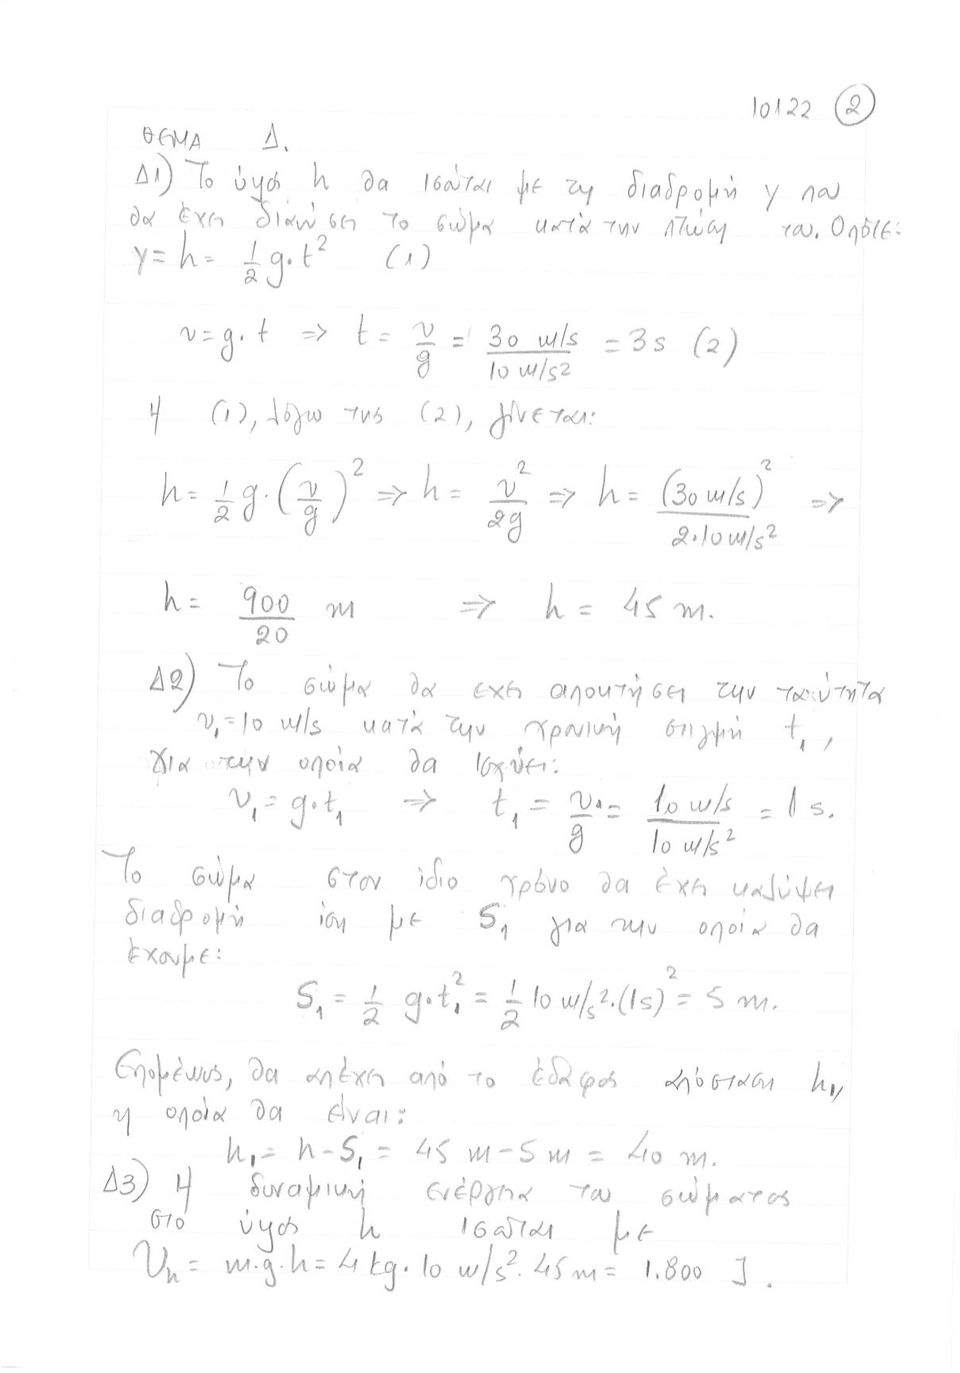 10122 ②
ΘΕΜΑ Δ.
Δ1) Το ύψος h θα ισούται με τη διαδρομή y που
θα έχει διανύσει το σώμα κατά την πτώση του. Οπότε:
y = h = 1/2 g·t² (1)
v = g·t ⇒ t = v/g = 30 m/s / 10 m/s² = 3s (2)
Η (1), λόγω της (2), γίνεται:
h = 1/2 g·(v/g)² ⇒ h = v²/2g ⇒ h = (30 m/s)² / 2·10 m/s² ⇒
h = 900/20 m ⇒ h = 45 m.
Δ2) Το σώμα θα έχει αποκτήσει την ταχύτητα
v₁ = 10 m/s κατά την χρονική στιγμή t₁,
για την οποία θα ισχύει:
v₁ = g·t₁ ⇒ t₁ = v₁/g = 10 m/s / 10 m/s² = 1 s.
Το σώμα στον ίδιο χρόνο θα έχει καλύψει
διαδρομή ίση με S₁ για την οποία θα
έχουμε:
S₁ = 1/2 g·t₁² = 1/2 10 m/s²·(1s)² = 5 m.
Επομένως, θα απέχει από το έδαφος απόσταση h₁,
η οποία θα είναι:
h₁ = h - S₁ = 45 m - 5 m = 40 m.
Δ3) Η δυναμική ενέργεια του σώματος
στο ύψος h ισούται με
U_h = m·g·h = 4 kg·10 m/s²·45 m = 1.800 J.